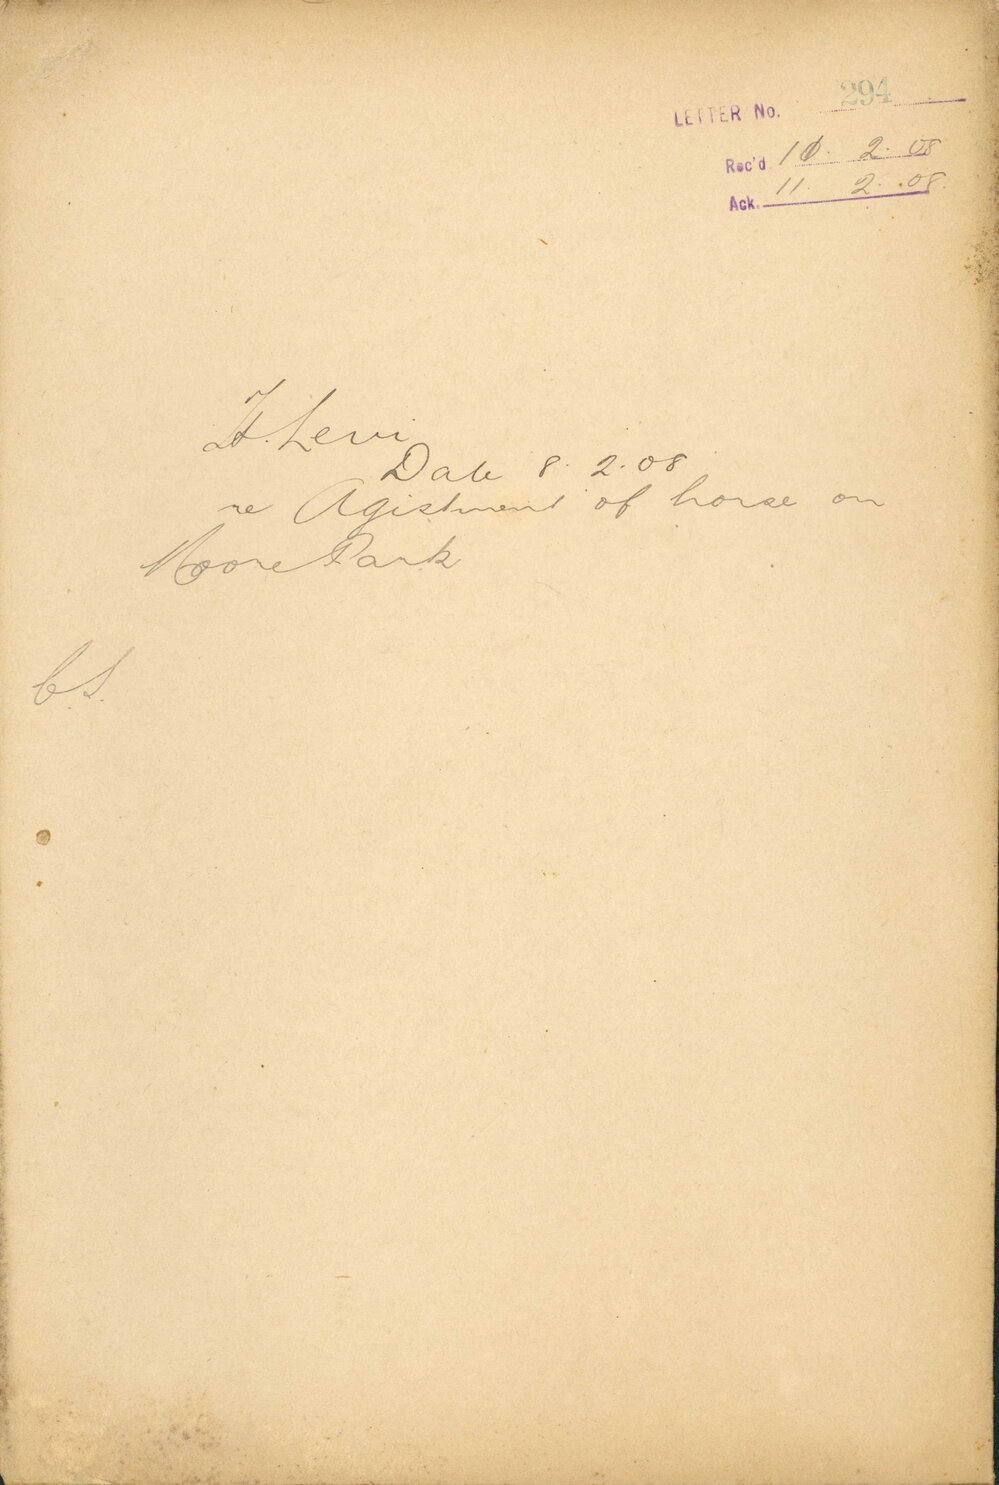 LETTER No. 294
Rec'd 10. 2. 08
Ack. 11. 2. 08.
Levi
Date 8. 2. 08
re Agistment of horse on
Moore Park
C.S.